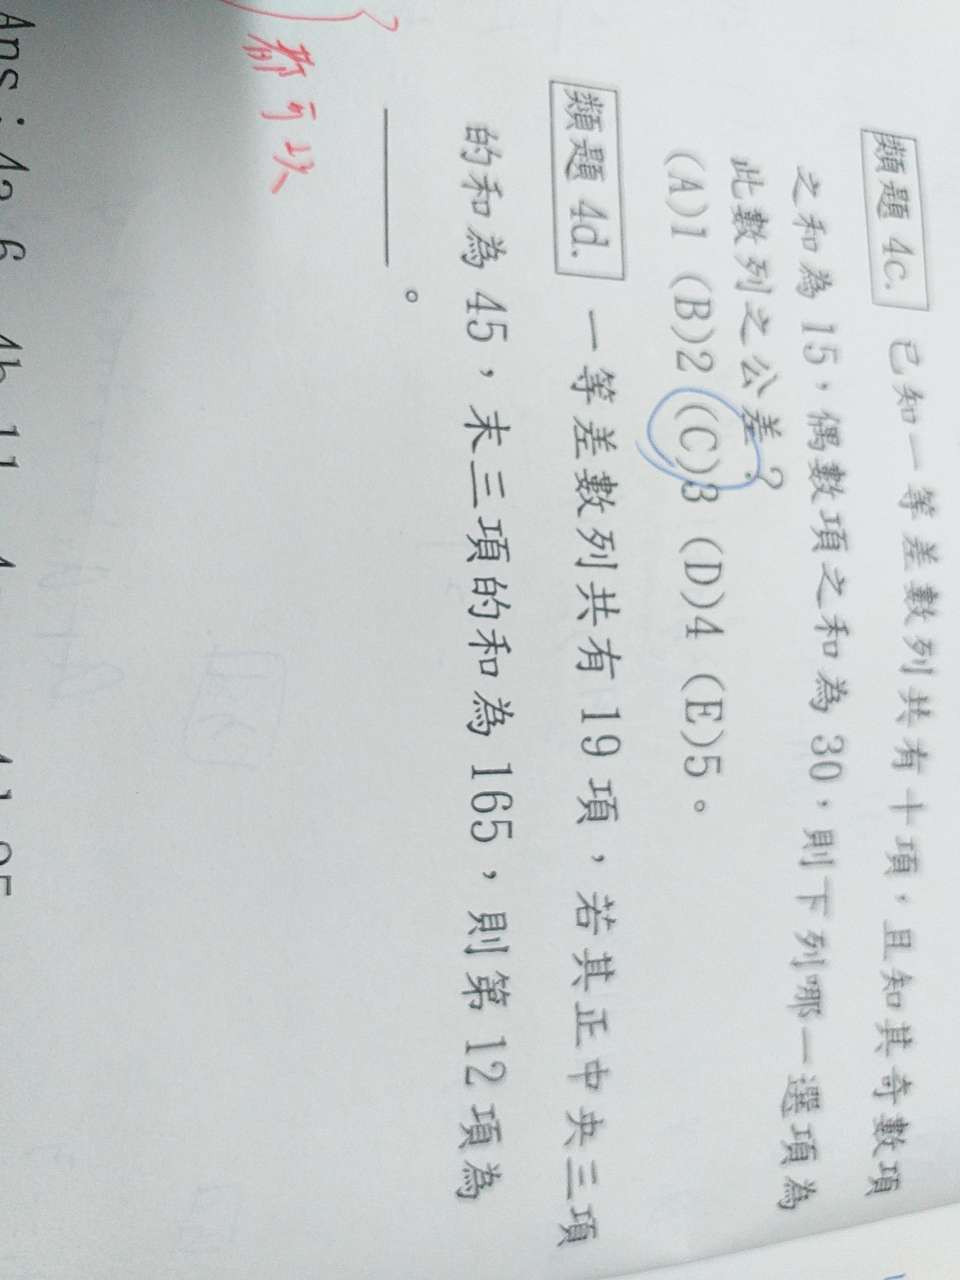 類題 4c. 已知一等差數列共有十項，且知其奇數項
之和為 15，偶數項之和為 30，則下列哪一選項為
此數列之公差？
(A)1 (B)2 (C)3 (D)4 (E)5。
類題 4d. 一等差數列共有 19 項，若其正中央三項
的和為 45，末三項的和為 165，則第 12 項為
______。
都可以